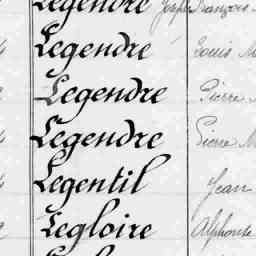 Legendre Joseph François
Legendre Louis
Legendre Pierre
Legendre Pierre M
Legentil Jean
Legloire Alphonse